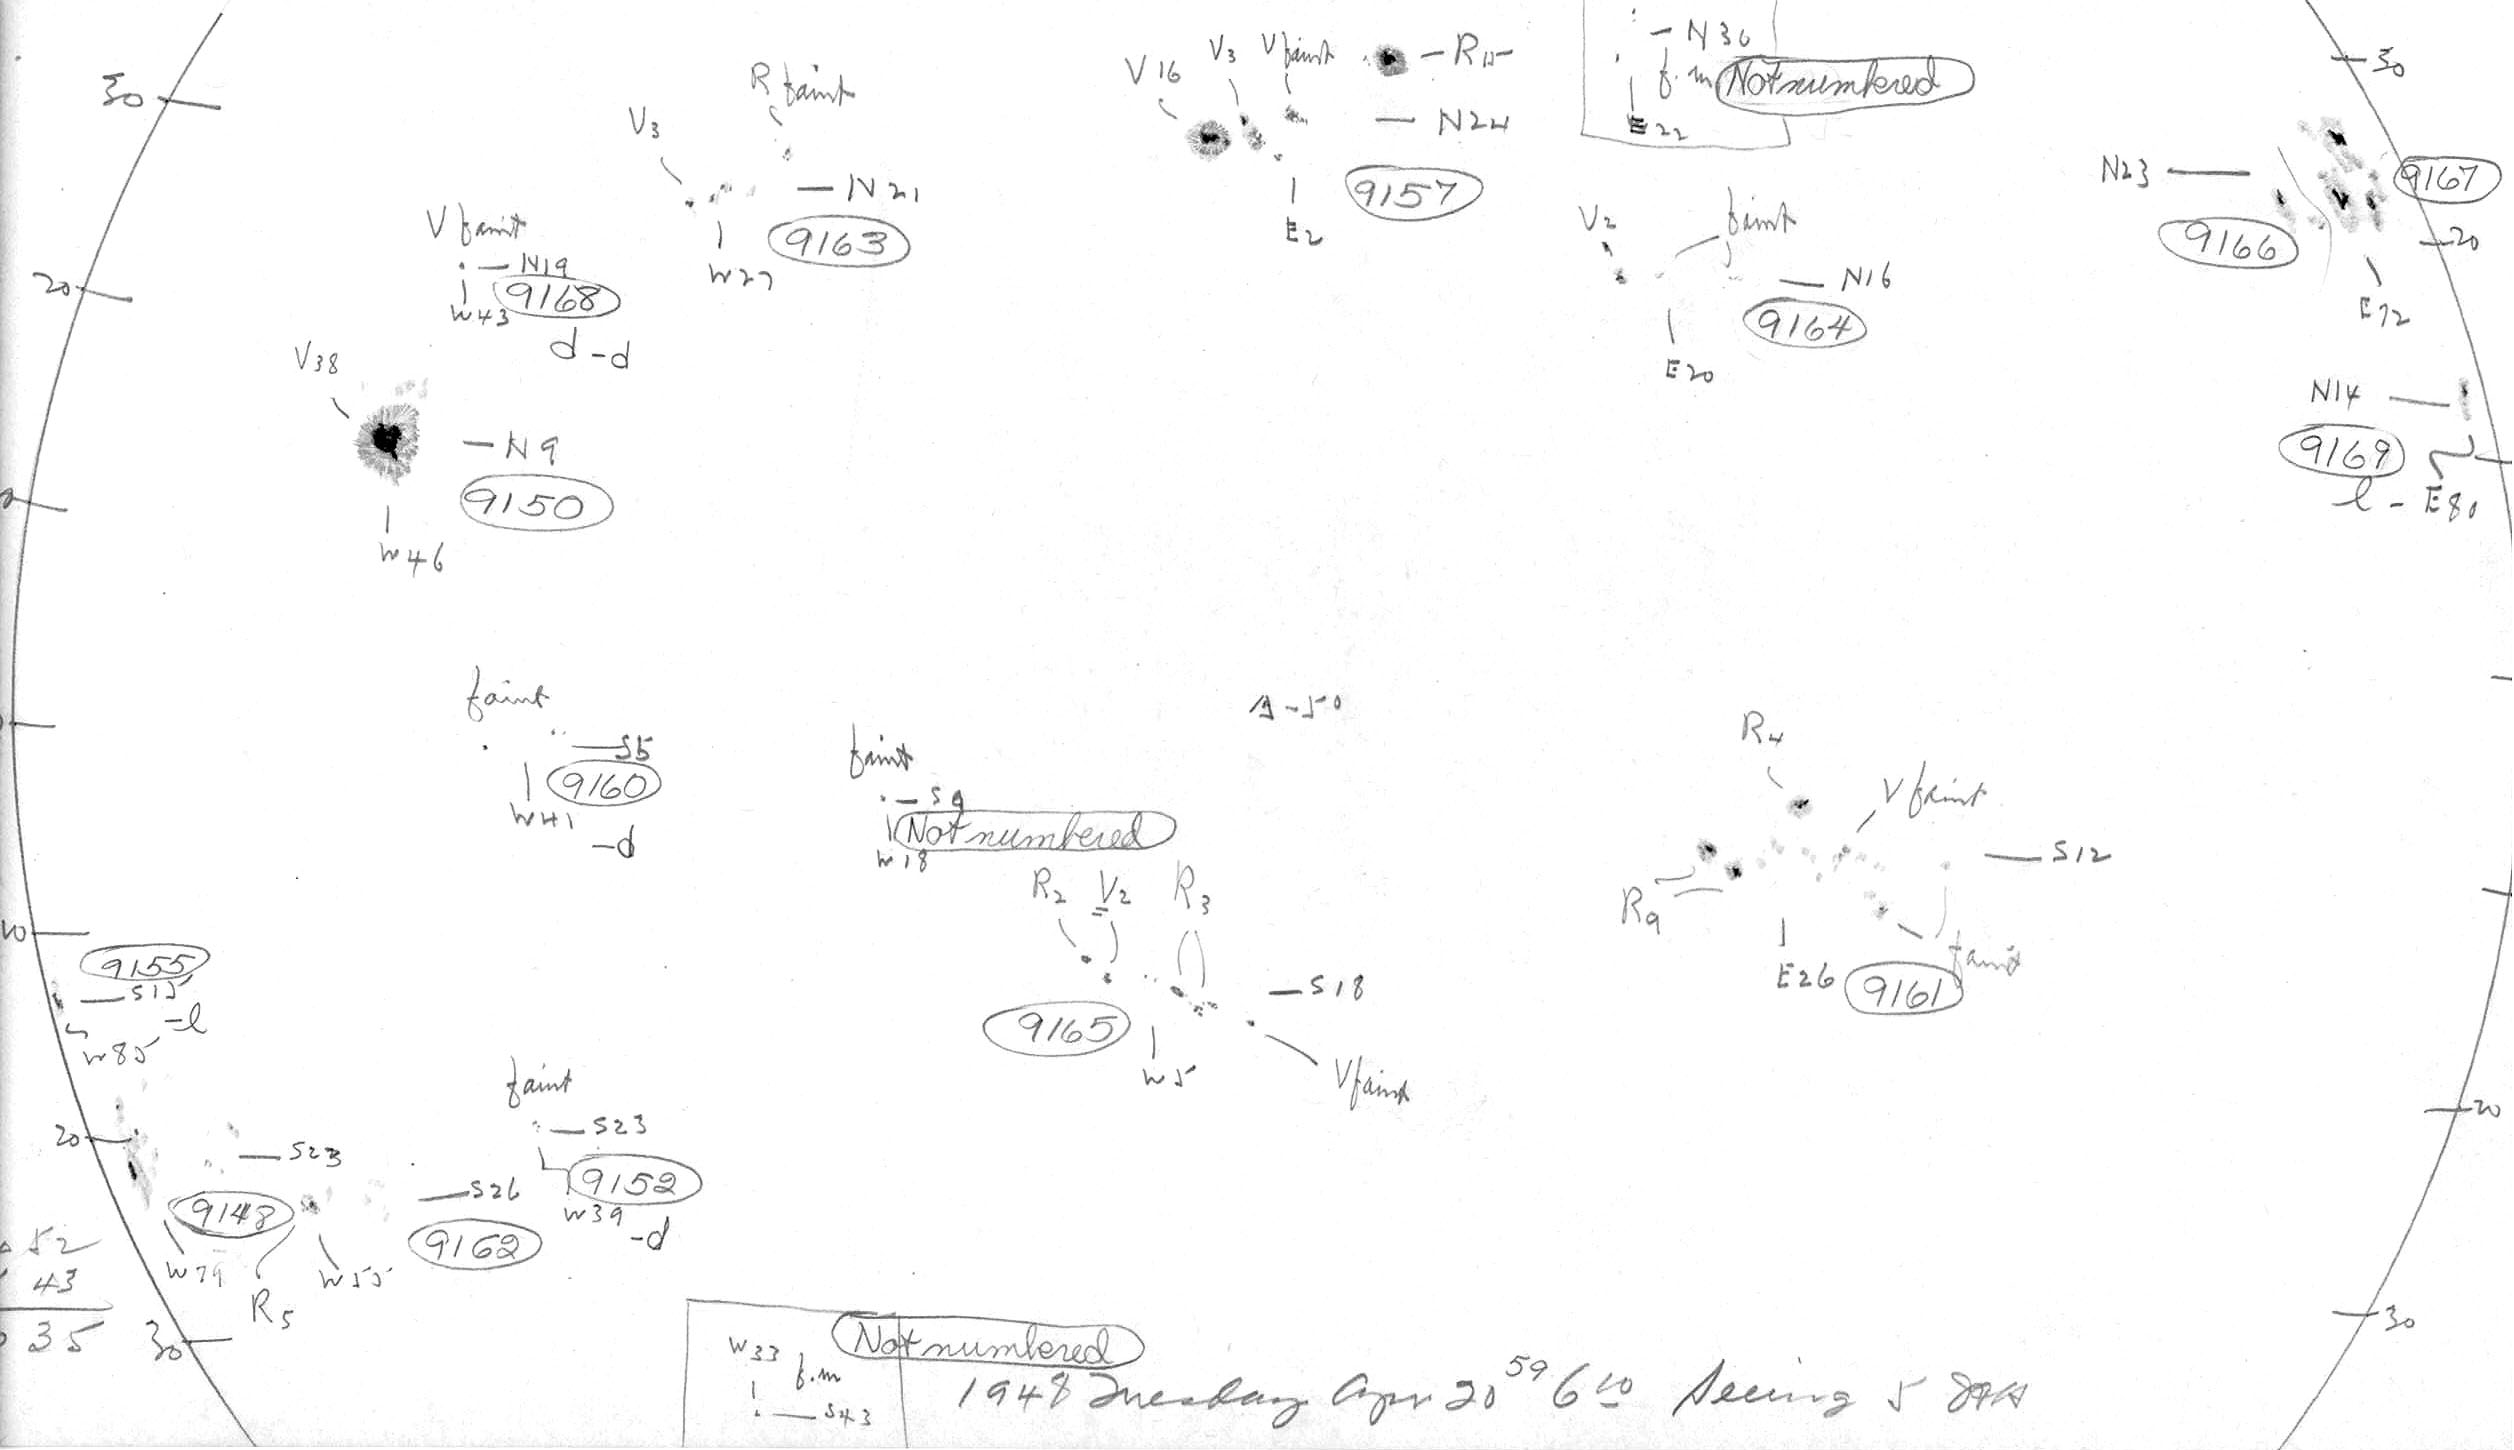 30
V3
R faint
V16
V3
Vfaint
R15
N30
f.m
Not numbered
E22
30
N24
9157
E2
N21
9163
W27
V faint
N19
9168
W43
d-d
20
V2
faint
N16
9164
E20
N23
9167
9166
20
E72
V38
N9
9150
W46
N14
9169
l - E80
faint
S5
9160
W41
-d
faint
S9
Not numbered
W18
R4
V faint
S12
R9
faint
E26
9161
R2
V2
R3
S18
9165
W5
Vfaint
10
9155
S15
-l
W85
20
S23
9148
W79
R5
S26
W55
9162
faint
S23
9152
W39
-d
20
52
43
35
30
30
W33
f.m
S43
Not numbered
1948 Tuesday Apr 20 59 6 10 Seeing 5